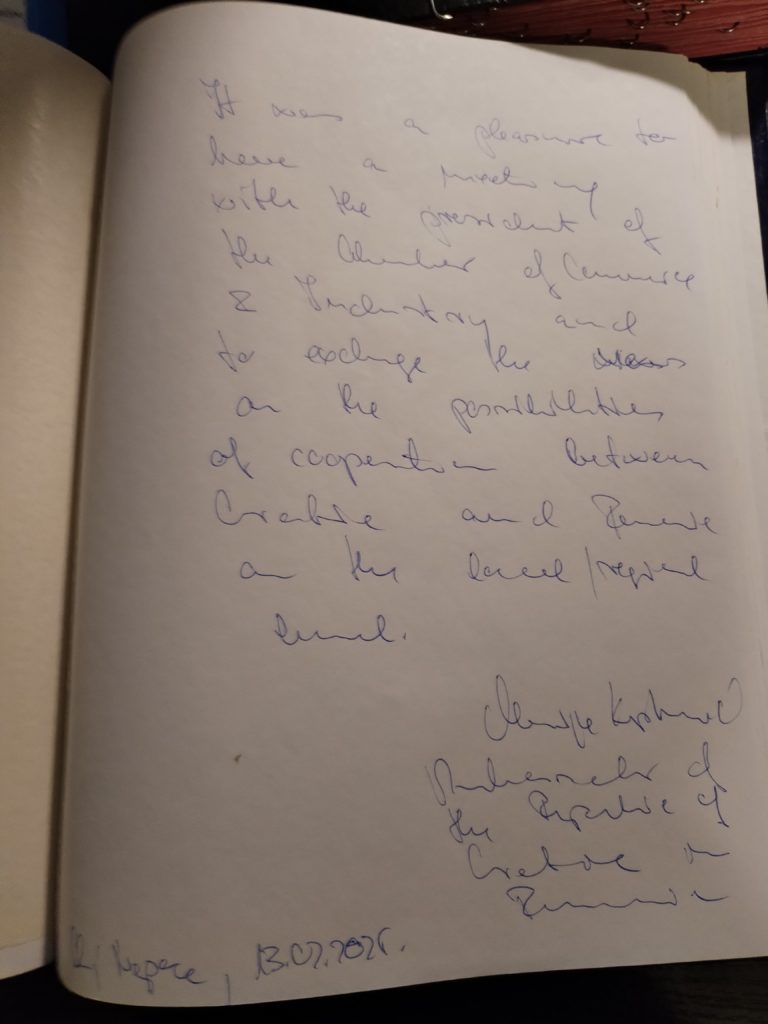 It was a pleasure to
have a meeting
with the president of
the Chamber of Commerce
& Industry and
to exchange the views
on the possibilities
of cooperation between
Croatia and Romania
on the local/regional
level.
Marija Kapitanović
Ambassador of
the Republic of
Croatia in
Romania
Cluj Napoca, 13.02.2025.